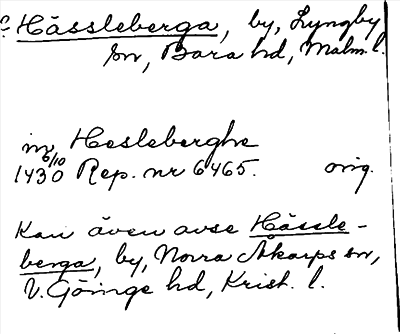 Hässleberga, by, Lyngby
sn, Bara hd, Malm. l.
in Hesleberghe
1430 6/10 Rep. nr 6465. orig.
Kan även avse Hässle-
berga, by, Norra Åkarps sn,
V. Göinge hd, Krist. l.